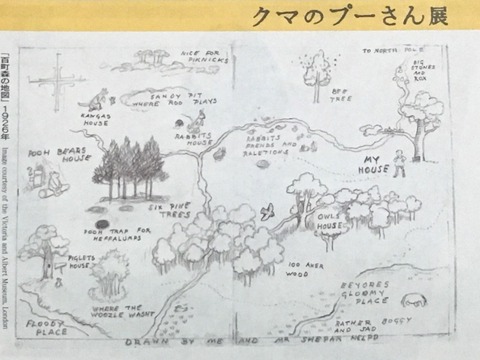 クマのプーさん展
「百町森の地図」1926年
Image courtesy of the Victoria and Albert Museum, London
NICE FOR
PIKNICKS
TO NORTH POLE
BIG
STONES
AND
ROX
BEE
TREE
SANDY PIT
WHERE ROO PLAYS
KANGAS
HOUSE
RABBITS
HOUSE
RABBITS
FRENDS AND
RALETIONS
MY
HOUSE
POOH BEARS
HOUSE
SIX PINE
TREES
POOH TRAP FOR
HEFFALUMPS
OWLS
HOUSE
PIGLETS
HOUSE
100 AKER
WOOD
WHERE THE
WOOZLE WASNT
EEYORES
GLOOMY
PLACE
RATHER BOGGY
AND SAD
FLOODY
PLACE
DRAWN BY ME AND MR SHEPARD HELPD